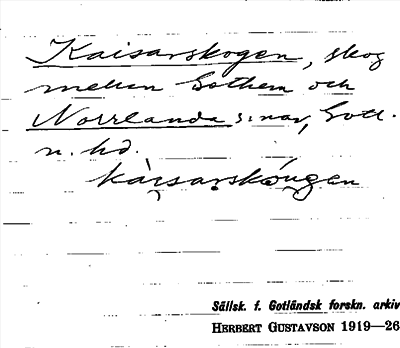 Kaisarskogen, skog
mellan Gothem och
Norrlanda s:nar, Gotl.
n. hd.
kàı̣sarskóụgen
Sällsk. f. Gotländsk forskn. arkiv
HERBERT GUSTAVSON 1919—26